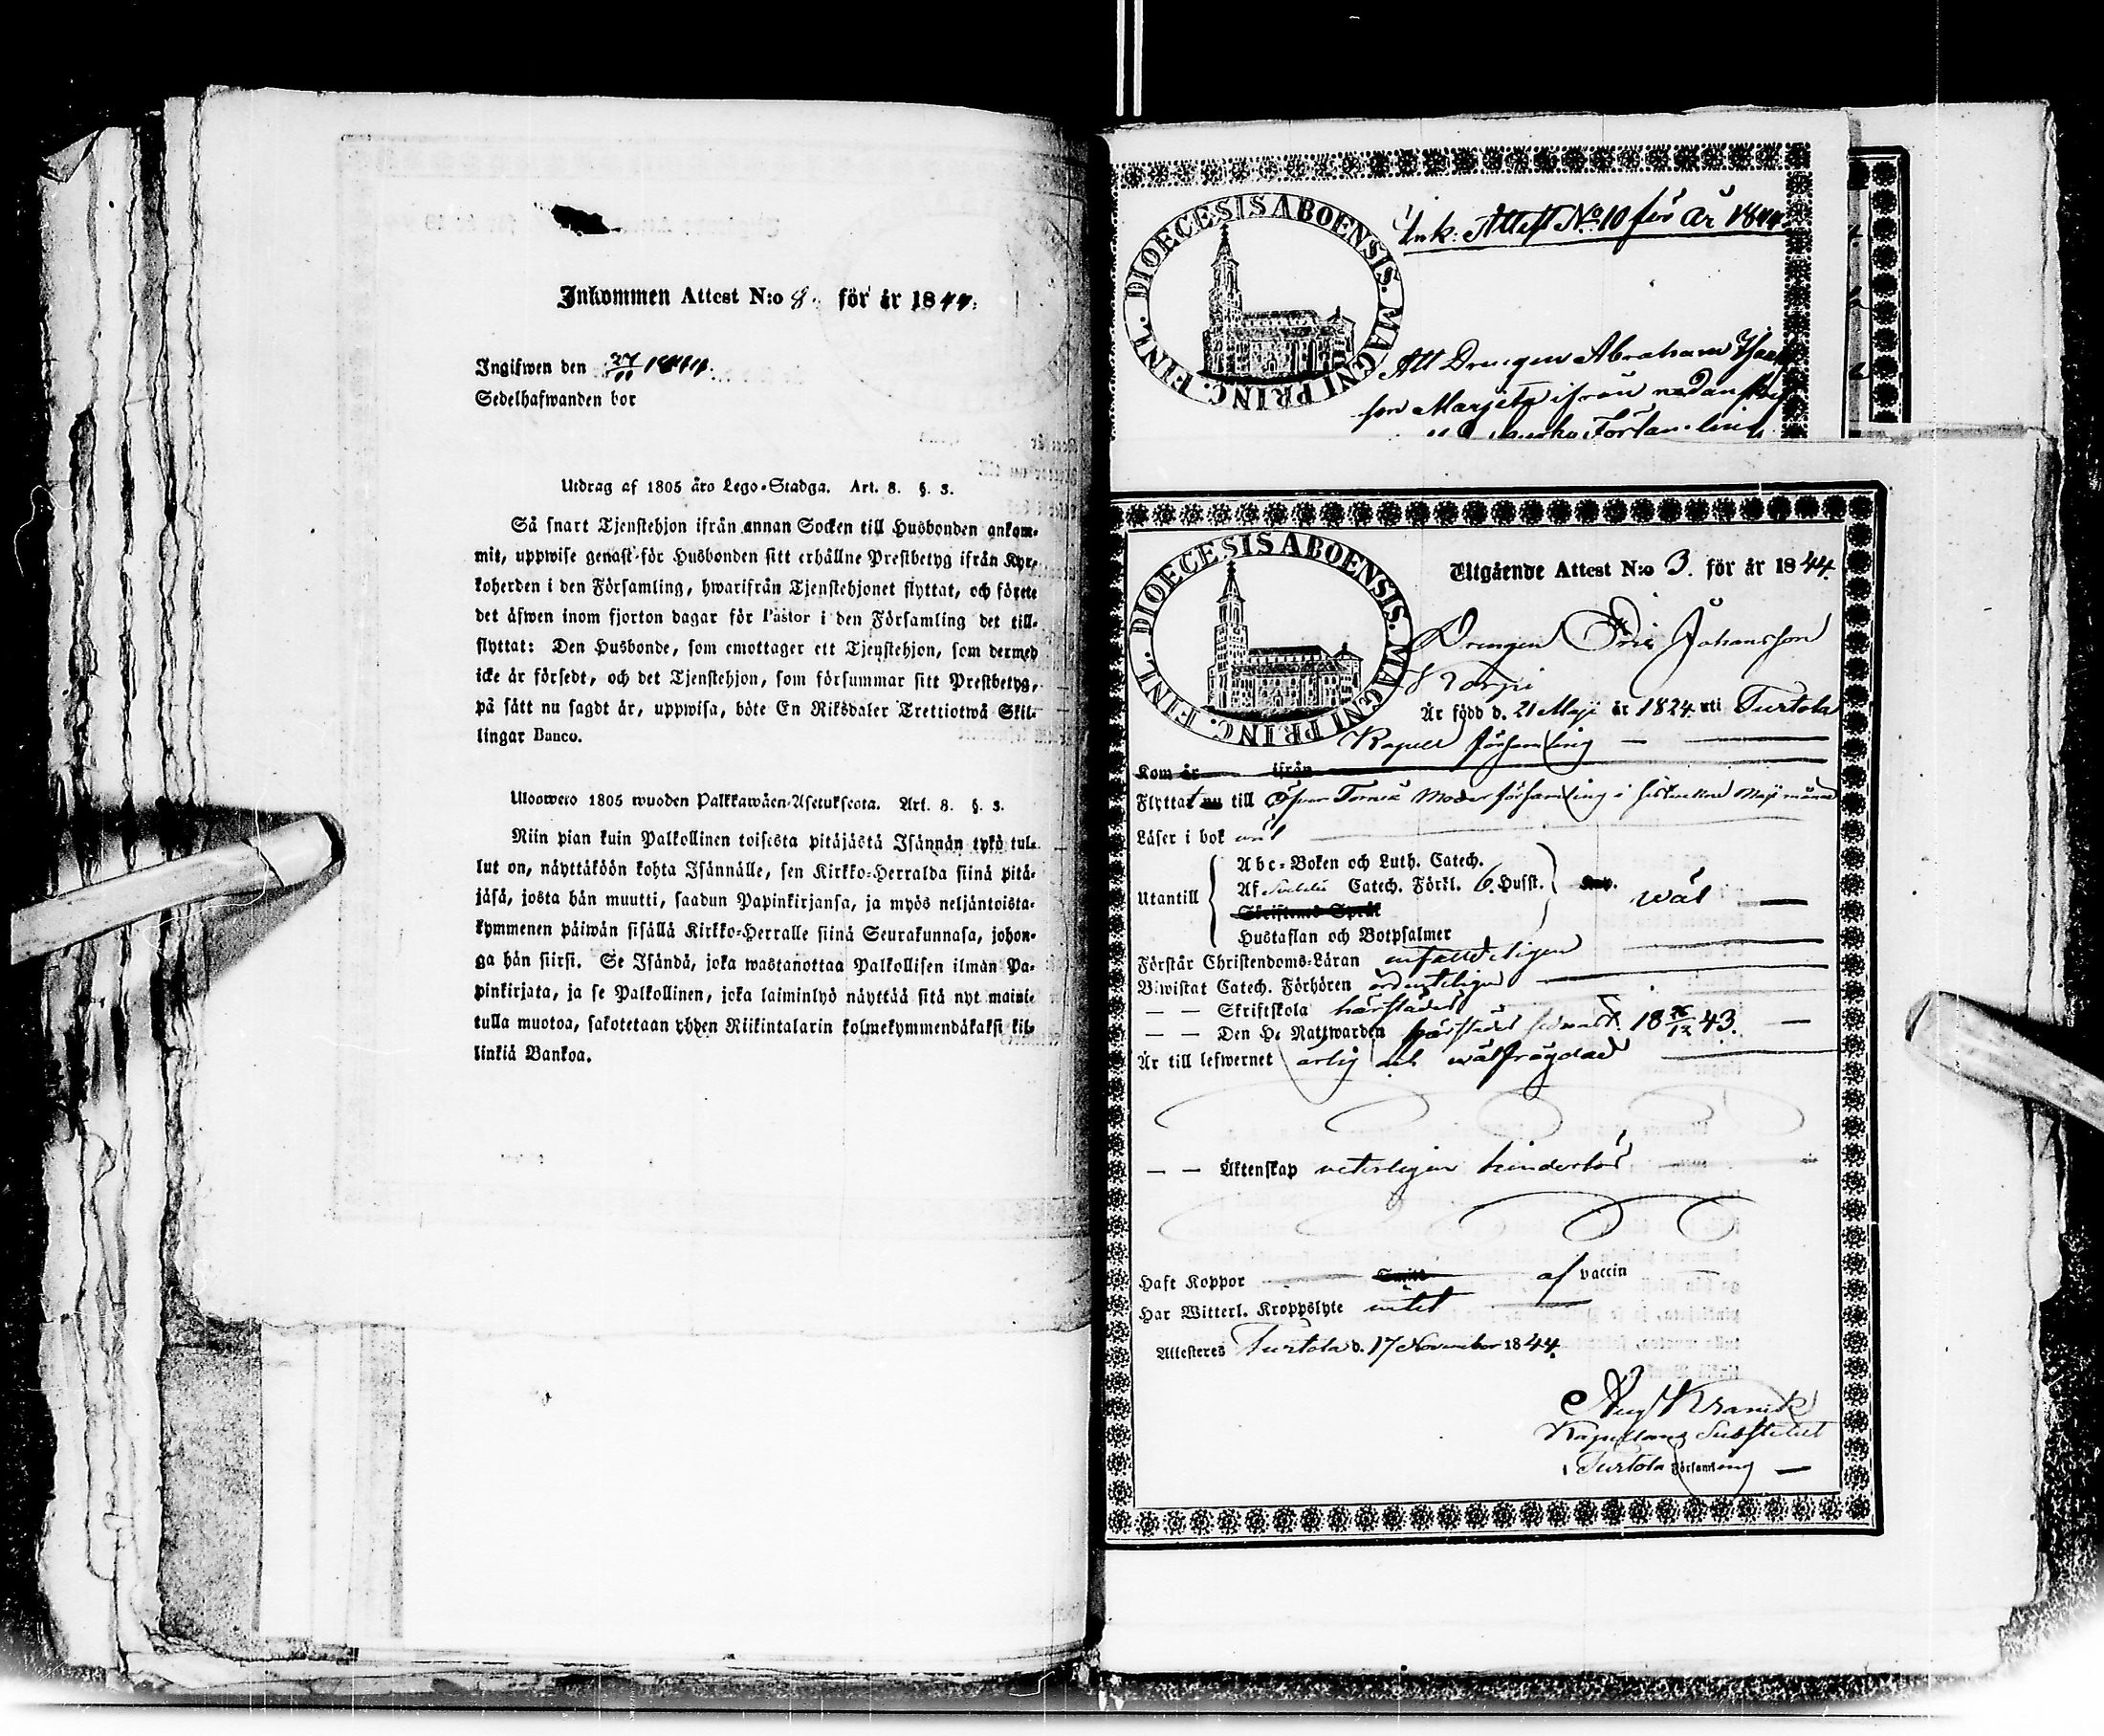 Inkommen Attest N:o 8. för år 1844.
Ingifwen den 27/11 1844.
Sedelhafwanden bor
Utdrag af 1805 åro Lego-Stadga. Art. 8. §. 3.
Så snart Tjenstehjon ifrån annan Socken till Husbonden ankom-
mit, uppwise genast för Husbonden sitt erhållne Prestbetyg ifrån Kyr-
koherden i den Församling, hwarifrån Tjenstehjonet flyttat, och förete
det äfwen inom fjorton dagar för Pastor i den Församling det till-
flyttat: Den Husbonde, som emottager ett Tjenstehjon, som dermed
icke är försedt, och det Tjenstehjon, som försummar sitt Prestbetyg,
på sätt nu sagdt är, uppwisa, böte En Riksdaler Trettiotwå Skil-
lingar Banco.
Uloswero 1805 wuoden Palkkawäen-Asetuksesta. Art. 8. §. 3.
Niin pian kuin Palkollinen toisesta pitäjästä Isännän tykö tul-
lut on, näyttäköön kohta Isännälle, sen Kirkko-Herralda siinä pitä-
jäsä, josta hän muutti, saadun Papinkirjansa, ja myös neljäntoista-
kymmenen päiwän sisällä Kirkko-Herralle siinä Seurakunnasa, johon-
ga hän siirsi. Se Isändä, joka wastanottaa Palkollisen ilman Pa-
pinkirjata, ja se Palkollinen, joka laiminlyö näyttää sitä nyt maini-
tulla muotoa, sakotetaan yhden Riikintalarin kolmekymmendäkaksi kil-
linkiä Bankoa.
DIOECESIS ABOENSIS. MAGNI PRINC. FINL.
Ink: Attest No 10 för år 1844.
Att Drengen Abraham
son Marjeta ifrån nedan
Församling
DIOECESIS ABOENSIS. MAGNI PRINC. FINL.
Utgående Attest N:o 3. för år 1844.
Drengen Johansson
Korpi
Är född d. 21 Maji år 1824 uti Turtola
Kapell församling
Kom år ifrån
Flyttat nu till Öfver Torneå Moder församling i Maji månad
Läser i bok wäl
Abc-Boken och Luth. Catech.
Utantill Af Catech. Förkl. 6. Husst. wäl
Skriftens Språk
Hustaflan och Botpsalmer
Förstår Christendoms-Läran enfalldeligen
Biwistat Catech. Förhören ordenteligen
— — Skriftskola härstädes
— — Den H. Nattwarden härstädes sednast 18 26/12 43.
Är till lefwernet ärlig och wälfrägdad
— — Äktenskap veterligen hinderlös
Haft Koppor af vaccin
Har Witterl. Kroppslyte intet
Attesteres Turtola d. 17 November 1844.
Aug Kranck
Kapellans Substitut
i Turtola Församling